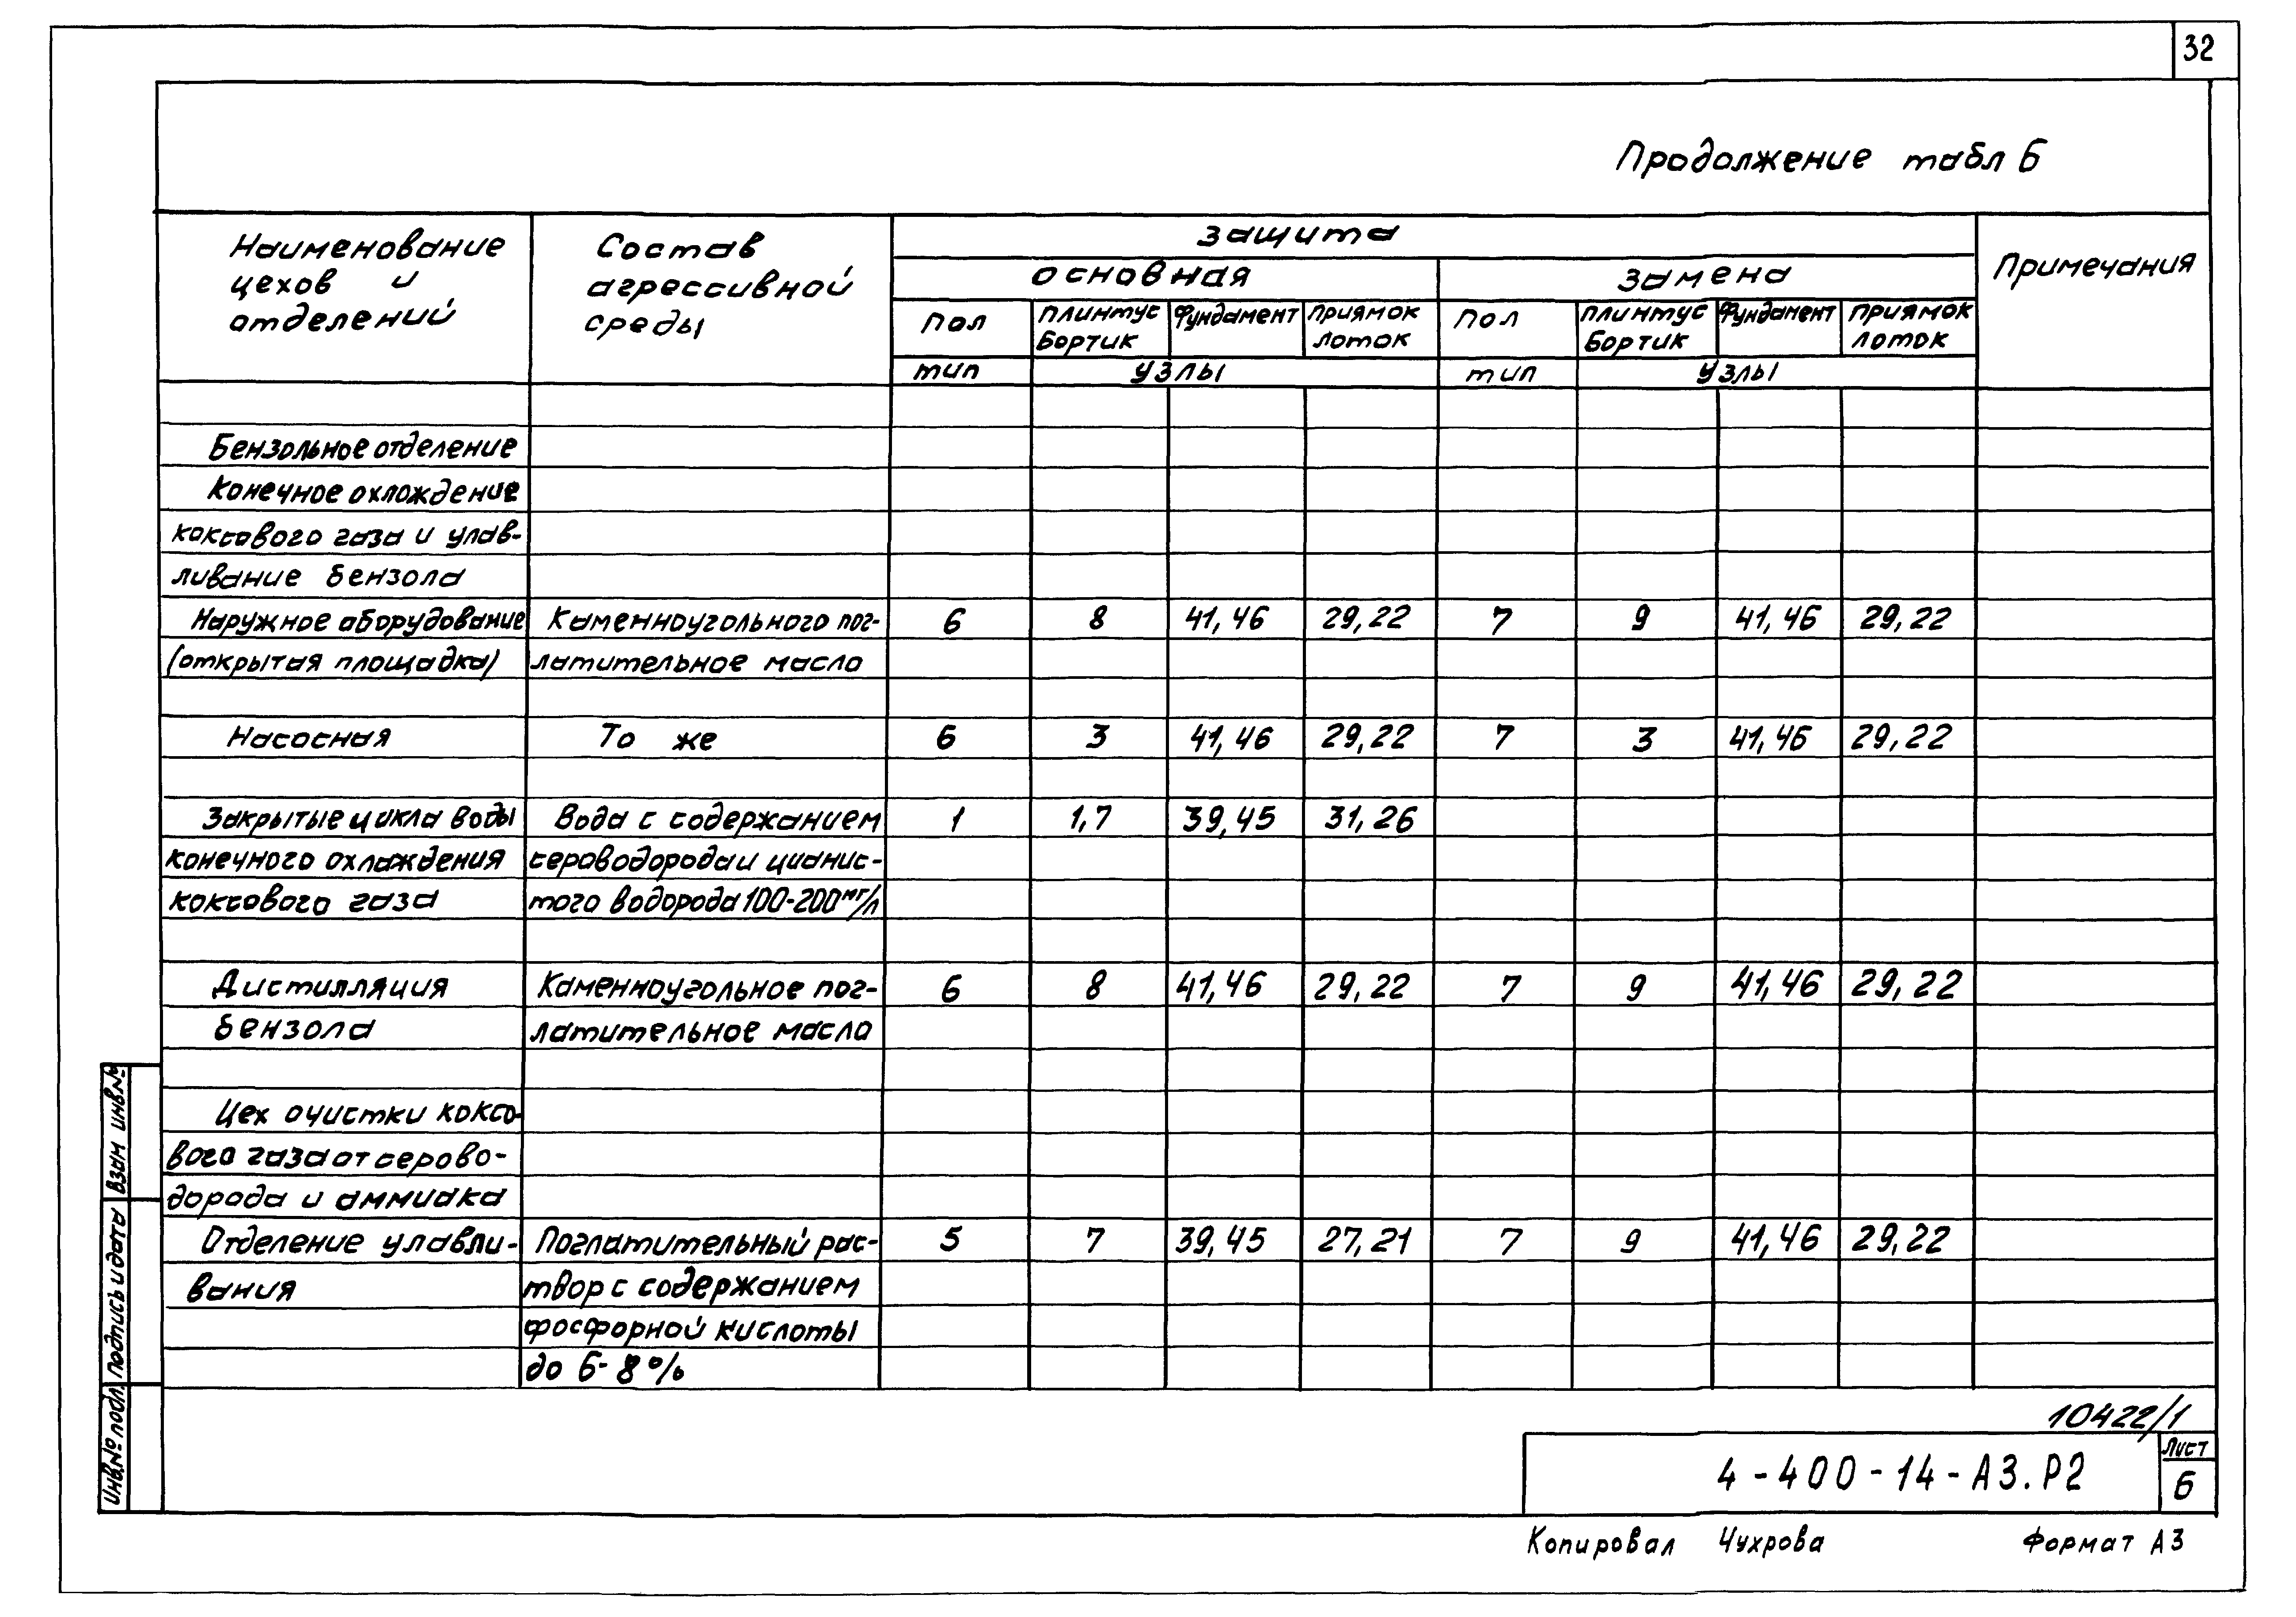 32
Продолжение табл 6
Наименование цехов и отделений
Состав агрессивной среды
защита
основная
замена
Примечания
Пол
плинтус Бортик
Фундамент
приямок лоток
Пол
плинтус бортик
Фундамент
приямок лоток
тип
узлы
тип
узлы
Бензольное отделение
Конечное охлождение
коксового газа и улав-
ливание бензола
Наружное оборудование Каменноугольного пог- 6 8 41,46 29,22 7 9 41,46 29,22
(открытая площадка) латительное масло
Насосная То же 6 3 41,46 29,22 7 3 41,46 29,22
Закрытые цикла воды Вода с содержанием 1 1,7 39,45 31,26
конечного охлаждения сероводорода и цианис-
коксового газа того водорода 100-200 мг/л
Дистилляция Каменноугольное пог- 6 8 41,46 29,22 7 9 41,46 29,22
бензола латительное масло
Цех очистки коксо-
вого газа от серово-
дорода и аммиака
Отделение улавли- Поглатительный рас- 5 7 39,45 27,21 7 9 41,46 29,22
вания твор с содержанием
фосфорной кислоты
до 6-8%
Взам инв.№
Подпись и дата
Инв.№ подл.
10422/1
4-400-14-А3.Р2
Лист
6
Копировал Чухрова Формат А3